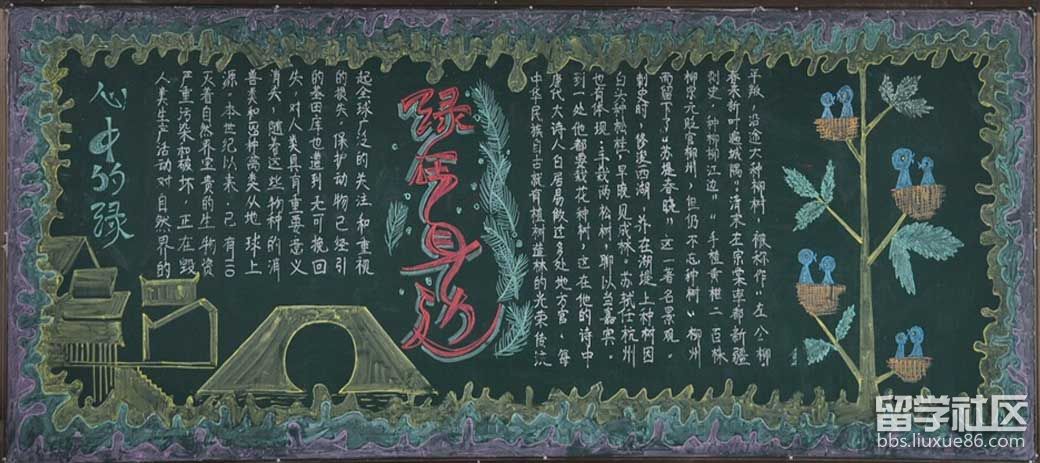 心中的绿
人类生产活动对自然界的
严重污染和破坏,正在毁
灭着自然界宝贵的生物资
源,本世纪以来,已有110
兽类和139种鸟类从地球上
消失,随着这些物种的消
失,对人类具有重要意义
的基因库也遭到无可挽回
的损失,保护动物已经引
起全球广泛的关注和重视
绿在身边
中华民族自古就有植树造林的光荣传统
唐代大诗人白居易做过多处地方官,每
到一处他都要栽花种树,这在他的诗中
也有体现:手栽两松树,聊以当嘉宾。
白头种松桂,早晚见成林。苏轼任杭州
刺史时,修浚西湖,并在湖堤上种树因
而留下了"苏堤春晓"这一著名景观。
柳宗元贬官柳州,但仍不忘种树"柳州
刺史,种柳柳江边""手植黄柑二百株
春来新叶遍城隅"清末左宗棠率部新疆
平叛,沿途大种柳树,被称作"左公柳"
留学社区
bbs.liuxue86.com